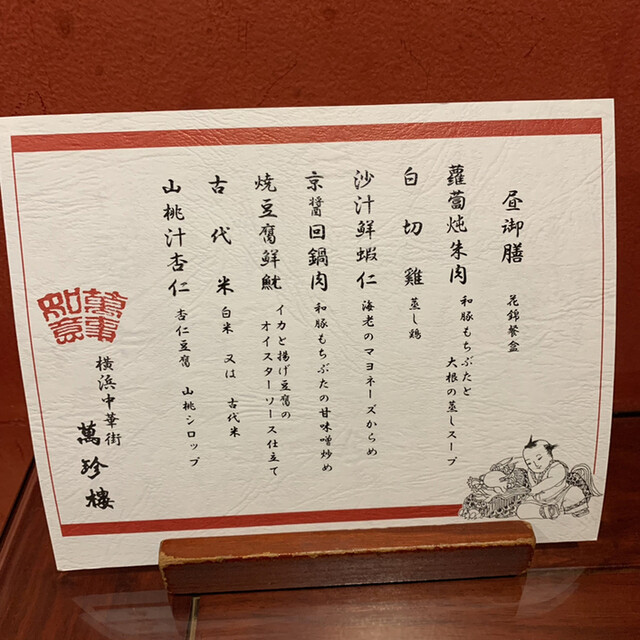 昼御膳 花錦餐盒
蘿蔔炖朱肉 和豚もちぶたと
大根の蒸しスープ
白切雞 蒸し鶏
沙汁鮮蝦仁 海老のマヨネーズからめ
京醬回鍋肉 和豚もちぶたの甘味噌炒め
焼豆腐鮮魷 イカと揚げ豆腐の
オイスターソース仕立て
古代米 白米 又は 古代米
山桃汁杏仁 杏仁豆腐 山桃シロップ
萬事如意
横浜中華街
萬珍樓